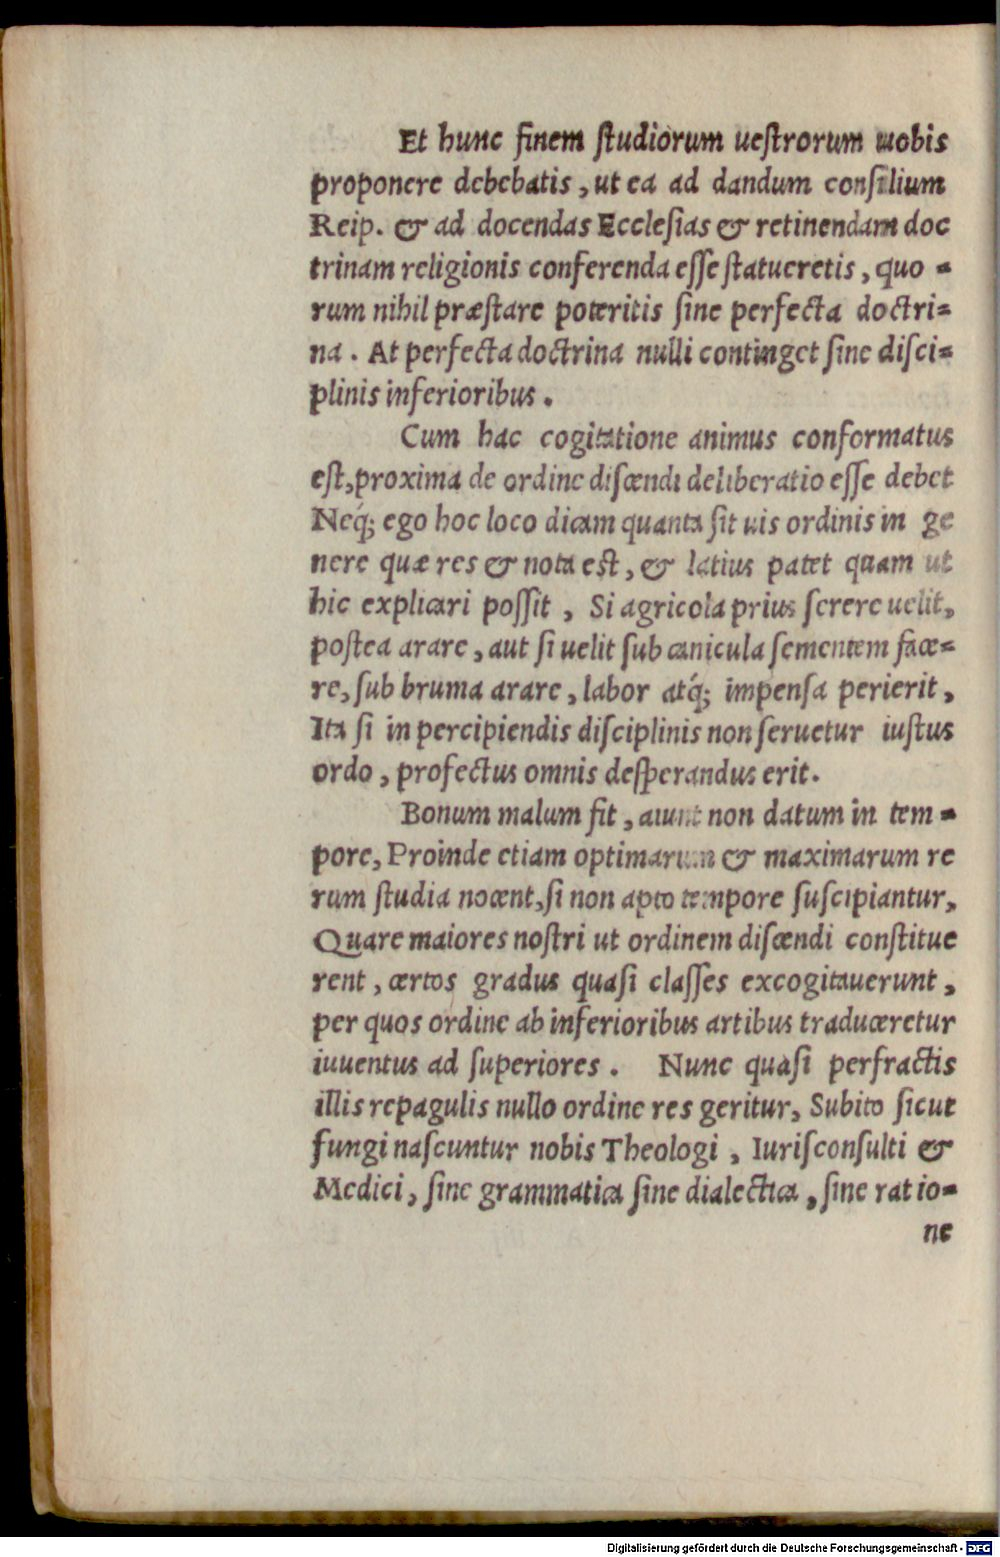 Et hunc finem ſtudiorum ueſtrorum uobis
proponere debebatis, ut ea ad dandum conſilium
Reip. & ad docendas Eccleſias & retinendam doc
trinam religionis conferenda eſſe ſtatueretis, quo =
rum nihil præſtare poteritis ſine perfecta doctri=
na. At perfecta doctrina nulli continget ſine diſci=
plinis inferioribus.
Cum hac cogitatione animus conformatus
eſt, proxima de ordine diſcendi deliberatio eſſe debet
Neq́; ego hoc loco dicam quanta ſit uis ordinis in ge
nere quæ res & nota eſt, & latius patet quam ut
hic explicari poſſit, Si agricola prius ſerere uelit,
poſtea arare, aut ſi uelit ſub canicula ſementem face=
re, ſub bruma arare, labor atq́; impenſa perierit,
Ita ſi in percipiendis diſciplinis non ſeruetur iuſtus
ordo, profectus omnis deſperandus erit.
Bonum malum fit, aiunt non datum in tem =
pore, Proinde etiam optimarum & maximarum re
rum ſtudia nocent, ſi non apto tempore ſuſcipiantur,
Quare maiores noſtri ut ordinem diſcendi conſtitue
rent, certos gradus quaſi claſſes excogitauerunt,
per quos ordine ab inferioribus artibus traduceretur
iuuentus ad ſuperiores. Nunc quaſi perfractis
illis repagulis nullo ordine res geritur, Subito ſicut
fungi naſcuntur nobis Theologi, Iurisconſulti &
Medici, ſine grammatica ſine dialectica, ſine ratio=
ne
Digitalisierung gefördert durch die Deutsche Forschungsgemeinschaft - DFG